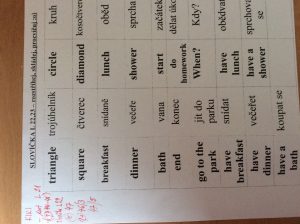 SLOVÍČKA L 22,23 – rozstříhej, skládej, procvičuj si
triangle trojúhelník circle kruh
square čtverec diamond kosočtverec
breakfast snídaně lunch oběd
dinner večeře shower sprcha
bath vana start začátek
end konec do homework dělat úkol
go to the park jít do parku When? Kdy?
have breakfast snídat have lunch obědvat
have dinner večeřet have a shower sprchovat se
have a bath koupat se